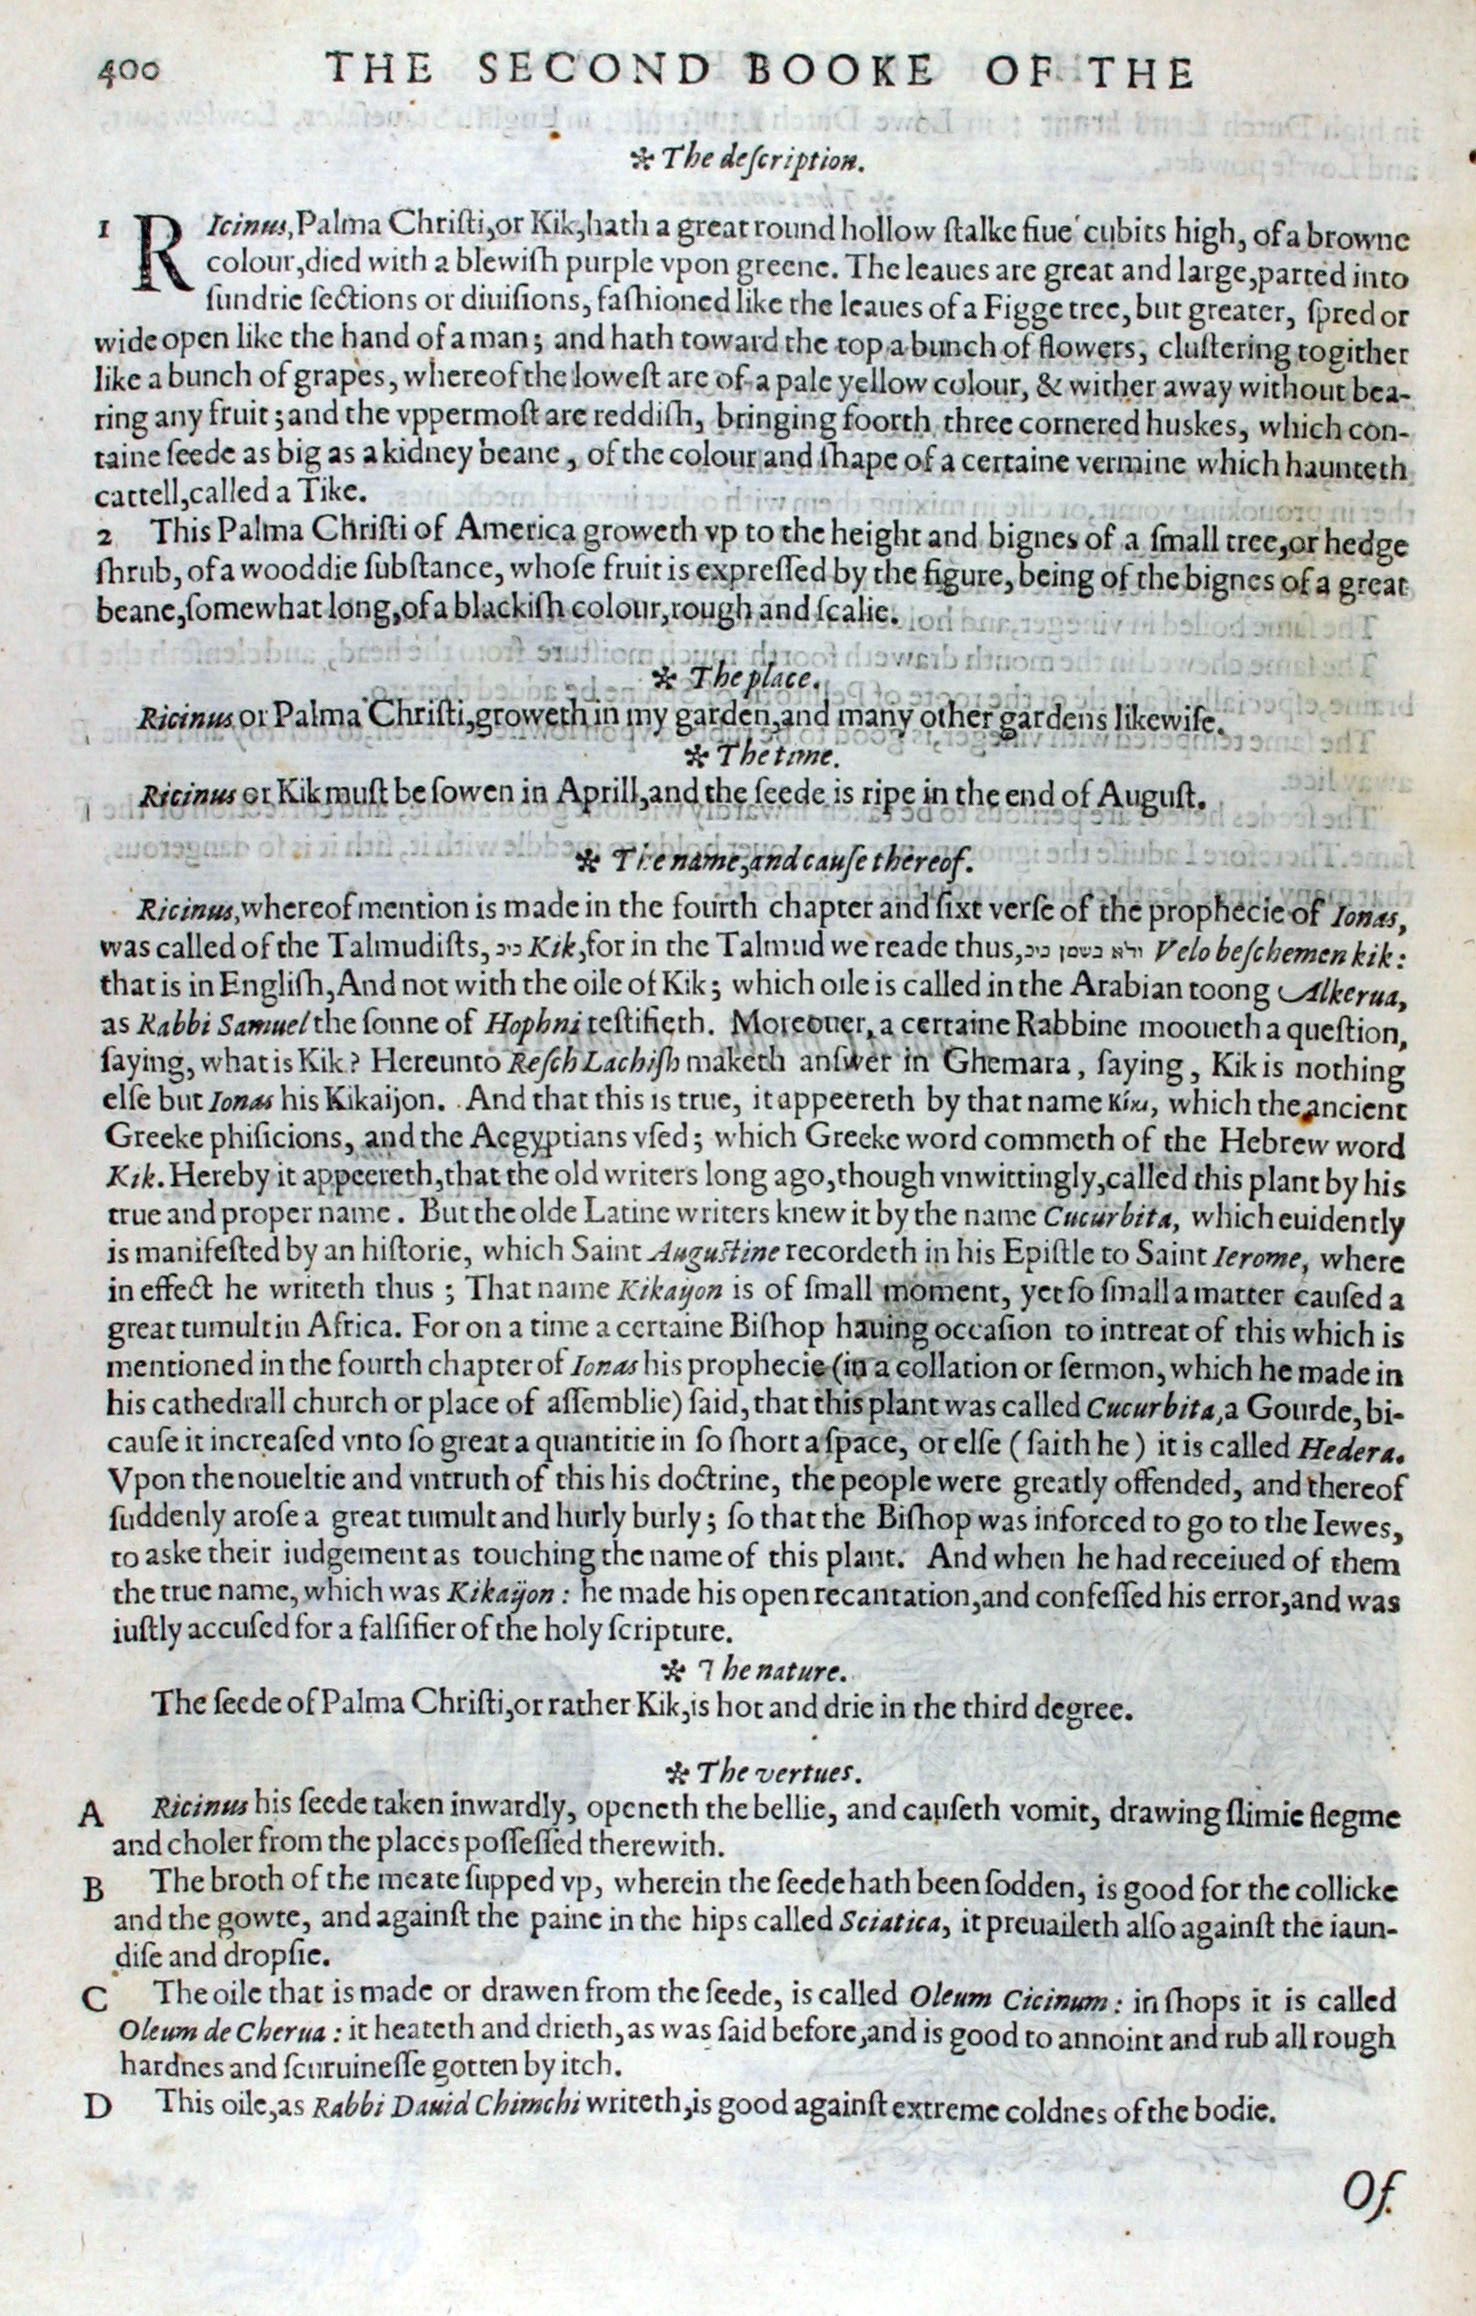 400 THE SECOND BOOKE OF THE
✲ The deſcription.
1 RIcinus, Palma Chriſti, or Kik, hath a great round hollow ſtalke fiue cubits high, of a browne
colour, died with a blewiſh purple vpon greene. The leaues are great and large, parted into
ſundrie ſections or diuiſions, faſhioned like the leaues of a Figge tree, but greater, ſpred or
wide open like the hand of a man; and hath toward the top a bunch of flowers, cluſtering togither
like a bunch of grapes, whereof the loweſt are of a pale yellow colour, & wither away without bea-
ring any fruit; and the vppermoſt are reddiſh, bringing foorth three cornered huskes, which con-
taine ſeede as big as a kidney beane, of the colour and ſhape of a certaine vermine which haunteth
cattell, called a Tike.
2 This Palma Chriſti of America groweth vp to the height and bignes of a ſmall tree, or hedge
ſhrub, of a wooddie ſubſtance, whoſe fruit is expreſſed by the figure, being of the bignes of a great
beane, ſomewhat long, of a blackiſh colour, rough and ſcalie.
✲ The place.
Ricinus or Palma Chriſti, groweth in my garden, and many other gardens likewiſe.
✲ The time.
Ricinus or Kik muſt be ſowen in Aprill, and the ſeede is ripe in the end of Auguſt.
✲ The name, and cauſe thereof.
Ricinus, whereof mention is made in the fourth chapter and ſixt verſe of the prophecie of Ionas,
was called of the Talmudiſts, כיכ Kik, for in the Talmud we reade thus, ולא בשמן כיכ Velo beſchemen kik:
that is in Engliſh, And not with the oile of Kik; which oile is called in the Arabian toong Alkerua,
as Rabbi Samuel the ſonne of Hophni teſtifieth. Moreouer, a certaine Rabbine mooueth a queſtion,
ſaying, what is Kik? Hereunto Reſch Lachiſh maketh anſwer in Ghemara, ſaying, Kik is nothing
elſe but Ionas his Kikaijon. And that this is true, it appeereth by that name Κίκι, which the ancient
Greeke phiſicions, and the Aegyptians vſed; which Greeke word commeth of the Hebrew word
Kik. Hereby it appeereth, that the old writers long ago, though vnwittingly, called this plant by his
true and proper name. But the olde Latine writers knew it by the name Cucurbita, which euidently
is manifeſted by an hiſtorie, which Saint Auguſtine recordeth in his Epiſtle to Saint Ierome, where
in effect he writeth thus; That name Kikaijon is of ſmall moment, yet ſo ſmall a matter cauſed a
great tumult in Africa. For on a time a certaine Biſhop hauing occaſion to intreat of this which is
mentioned in the fourth chapter of Ionas his prophecie (in a collation or ſermon, which he made in
his cathedrall church or place of aſſemblie) ſaid, that this plant was called Cucurbita, a Gourde, bi-
cauſe it increaſed vnto ſo great a quantitie in ſo ſhort a ſpace, or elſe (ſaith he) it is called Hedera.
Vpon the noueltie and vntruth of this his doctrine, the people were greatly offended, and thereof
ſuddenly aroſe a great tumult and hurly burly; ſo that the Biſhop was inforced to go to the Iewes,
to aske their iudgement as touching the name of this plant. And when he had receiued of them
the true name, which was Kikaijon: he made his open recantation, and confeſſed his error, and was
iuſtly accuſed for a falſifier of the holy ſcripture.
✲ The nature.
The ſeede of Palma Chriſti, or rather Kik, is hot and drie in the third degree.
✲ The vertues.
A Ricinus his ſeede taken inwardly, openeth the bellie, and cauſeth vomit, drawing ſlimie flegme
and choler from the places poſſeſſed therewith.
B The broth of the meate ſupped vp, wherein the ſeede hath been ſodden, is good for the collicke
and the gowte, and againſt the paine in the hips called Sciatica, it preuaileth alſo againſt the iaun-
diſe and dropſie.
C The oile that is made or drawen from the ſeede, is called Oleum Cicinum: in ſhops it is called
Oleum de Cherua: it heateth and drieth, as was ſaid before, and is good to annoint and rub all rough
hardnes and ſcuruineſſe gotten by itch.
D This oile, as Rabbi Dauid Chimchi writeth, is good againſt extreme coldnes of the bodie.
Of